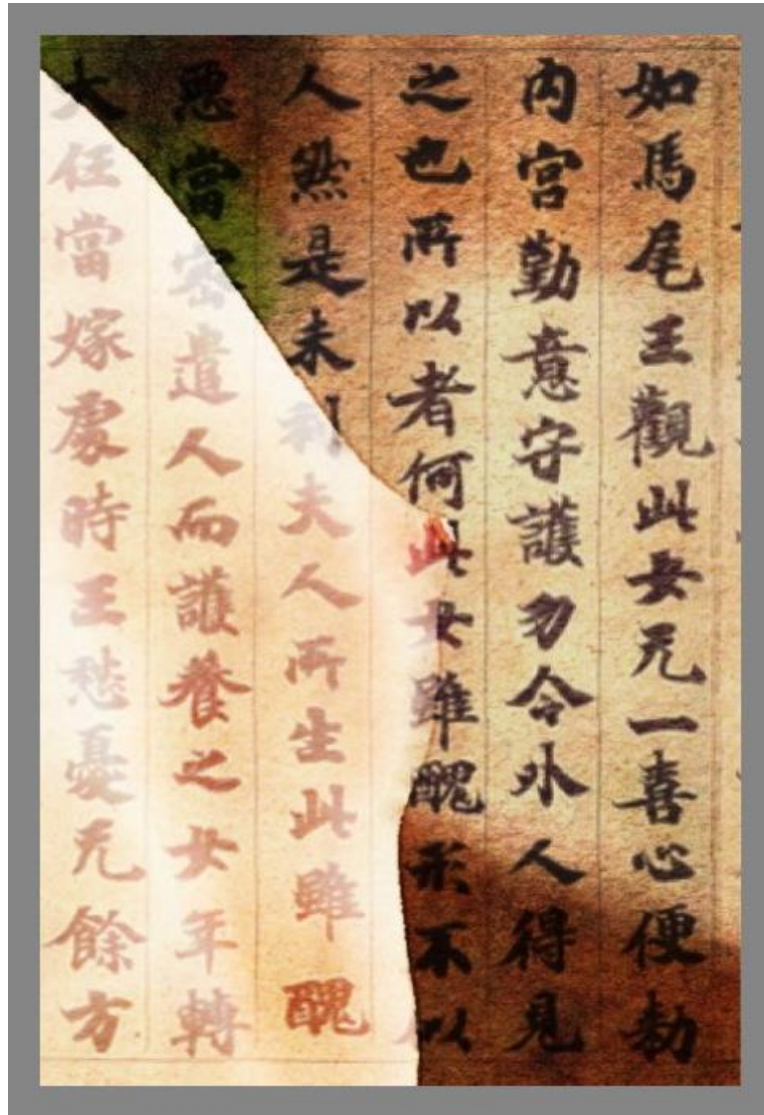 如馬尾王觀此女无一喜心便勑
内宮勤意守護勿令外人得見
之也所以者何此女雖醜形不似
人然是末利夫人所生此雖醜
惡當密遣人而護養之女年轉
大任當嫁處時王愁憂无餘方